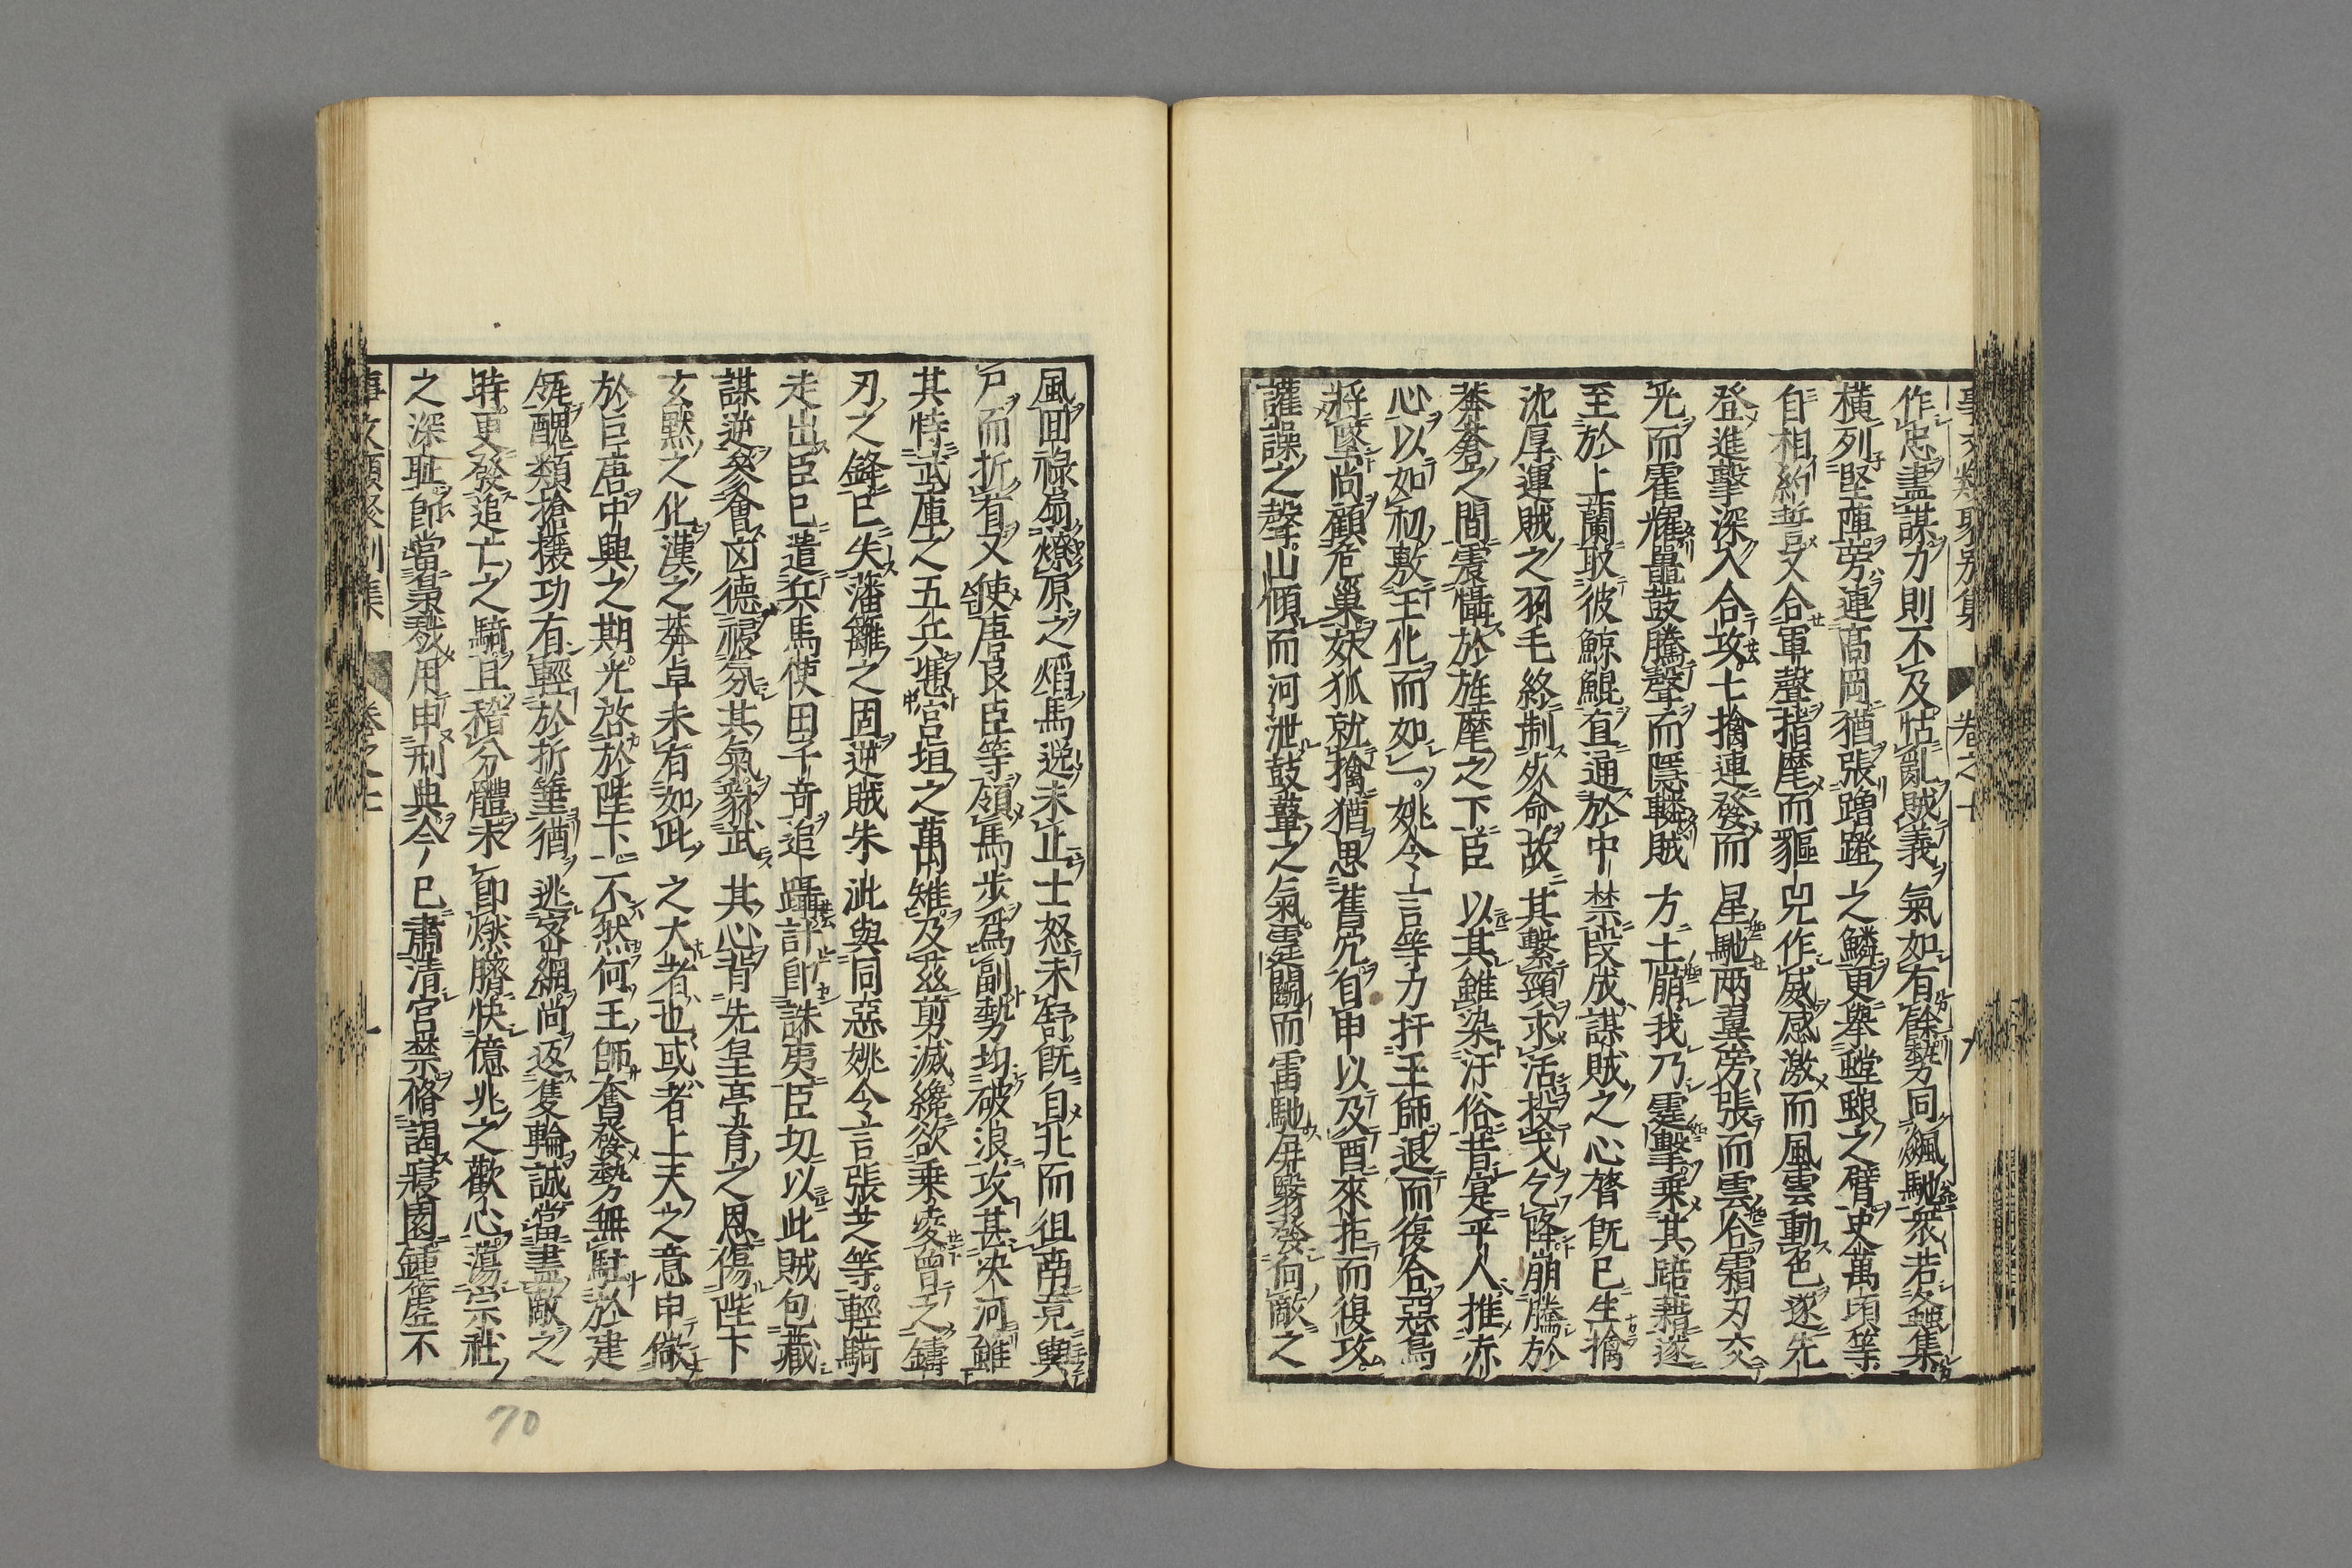 作忠盡謀力則不及怙亂賊義氣如有餘勢同飈馳衆若蟲集
橫列堅陣旁連高岡猶張蹭蹬之鱗更舉螳蜋之臂史萬頃等
自相約誓又合軍聲指麾而貙兕作威感激而風雲動色遂先
登進擊深入合攻七擒連發而星馳兩翼旁張而雲合霜刃交
光而霍燿鼉鼓騰聲而隱轔賊方土崩我乃霆擊乘其踣藉遂
至於上蘭取彼鯨鯢直通於中禁段成謀賊之心膂既已生擒
沈厚運賊之羽毛終制死命故其繫頸求活投戈乞降崩騰於
莽蒼之間震懾於旌麾之下臣以其雖染汙俗昔寔平人推赤
心以如初敷王化而如一姚令言等力扞王師退而復合惡鳥
將墜尚顧危巢妖狐就擒猶思舊穴自申以及酉來拒而復攻
讙譟之聲山傾而河泄鼓鼙之氣霆鬪而雷馳屏翳發向敵之
風回祿扇燎原之熖馬逸未止士怒未舒既自北而徂南竟輿
尸而折首又使唐良臣等領馬步爲副勢均破浪攻甚决河雖
其恃武庫之五兵憑宮垣之萬雉及茲剪滅纔欲乘凌曾乏鑄
刃之鋒已失藩籬之固逆賊朱泚與同惡姚令言張芝等輕騎
走出臣已遣兵馬使田子奇追躡計卽誅夷臣切以此賊包藏
謀逆參會凶德祲氛其氣豺武其心背先皇亭育之恩傷陛下
玄默之化漢之莽卓未有如此之大者也或者上天之意申儆
於臣唐中興之期光啓於陛下不然何王師奮發勢無駐於建
瓴醜類搶攘功有輕於折箠猶逃密網尚返隻輪誠當盡敵之
時更發追亡之騎且稽分體未卽燃臍快億兆之歡心蕩宗社
之深恥卽當梟戮用申刑典今已肅淸宮禁脩謁寢園鍾簴不
事文類聚別集 卷之七